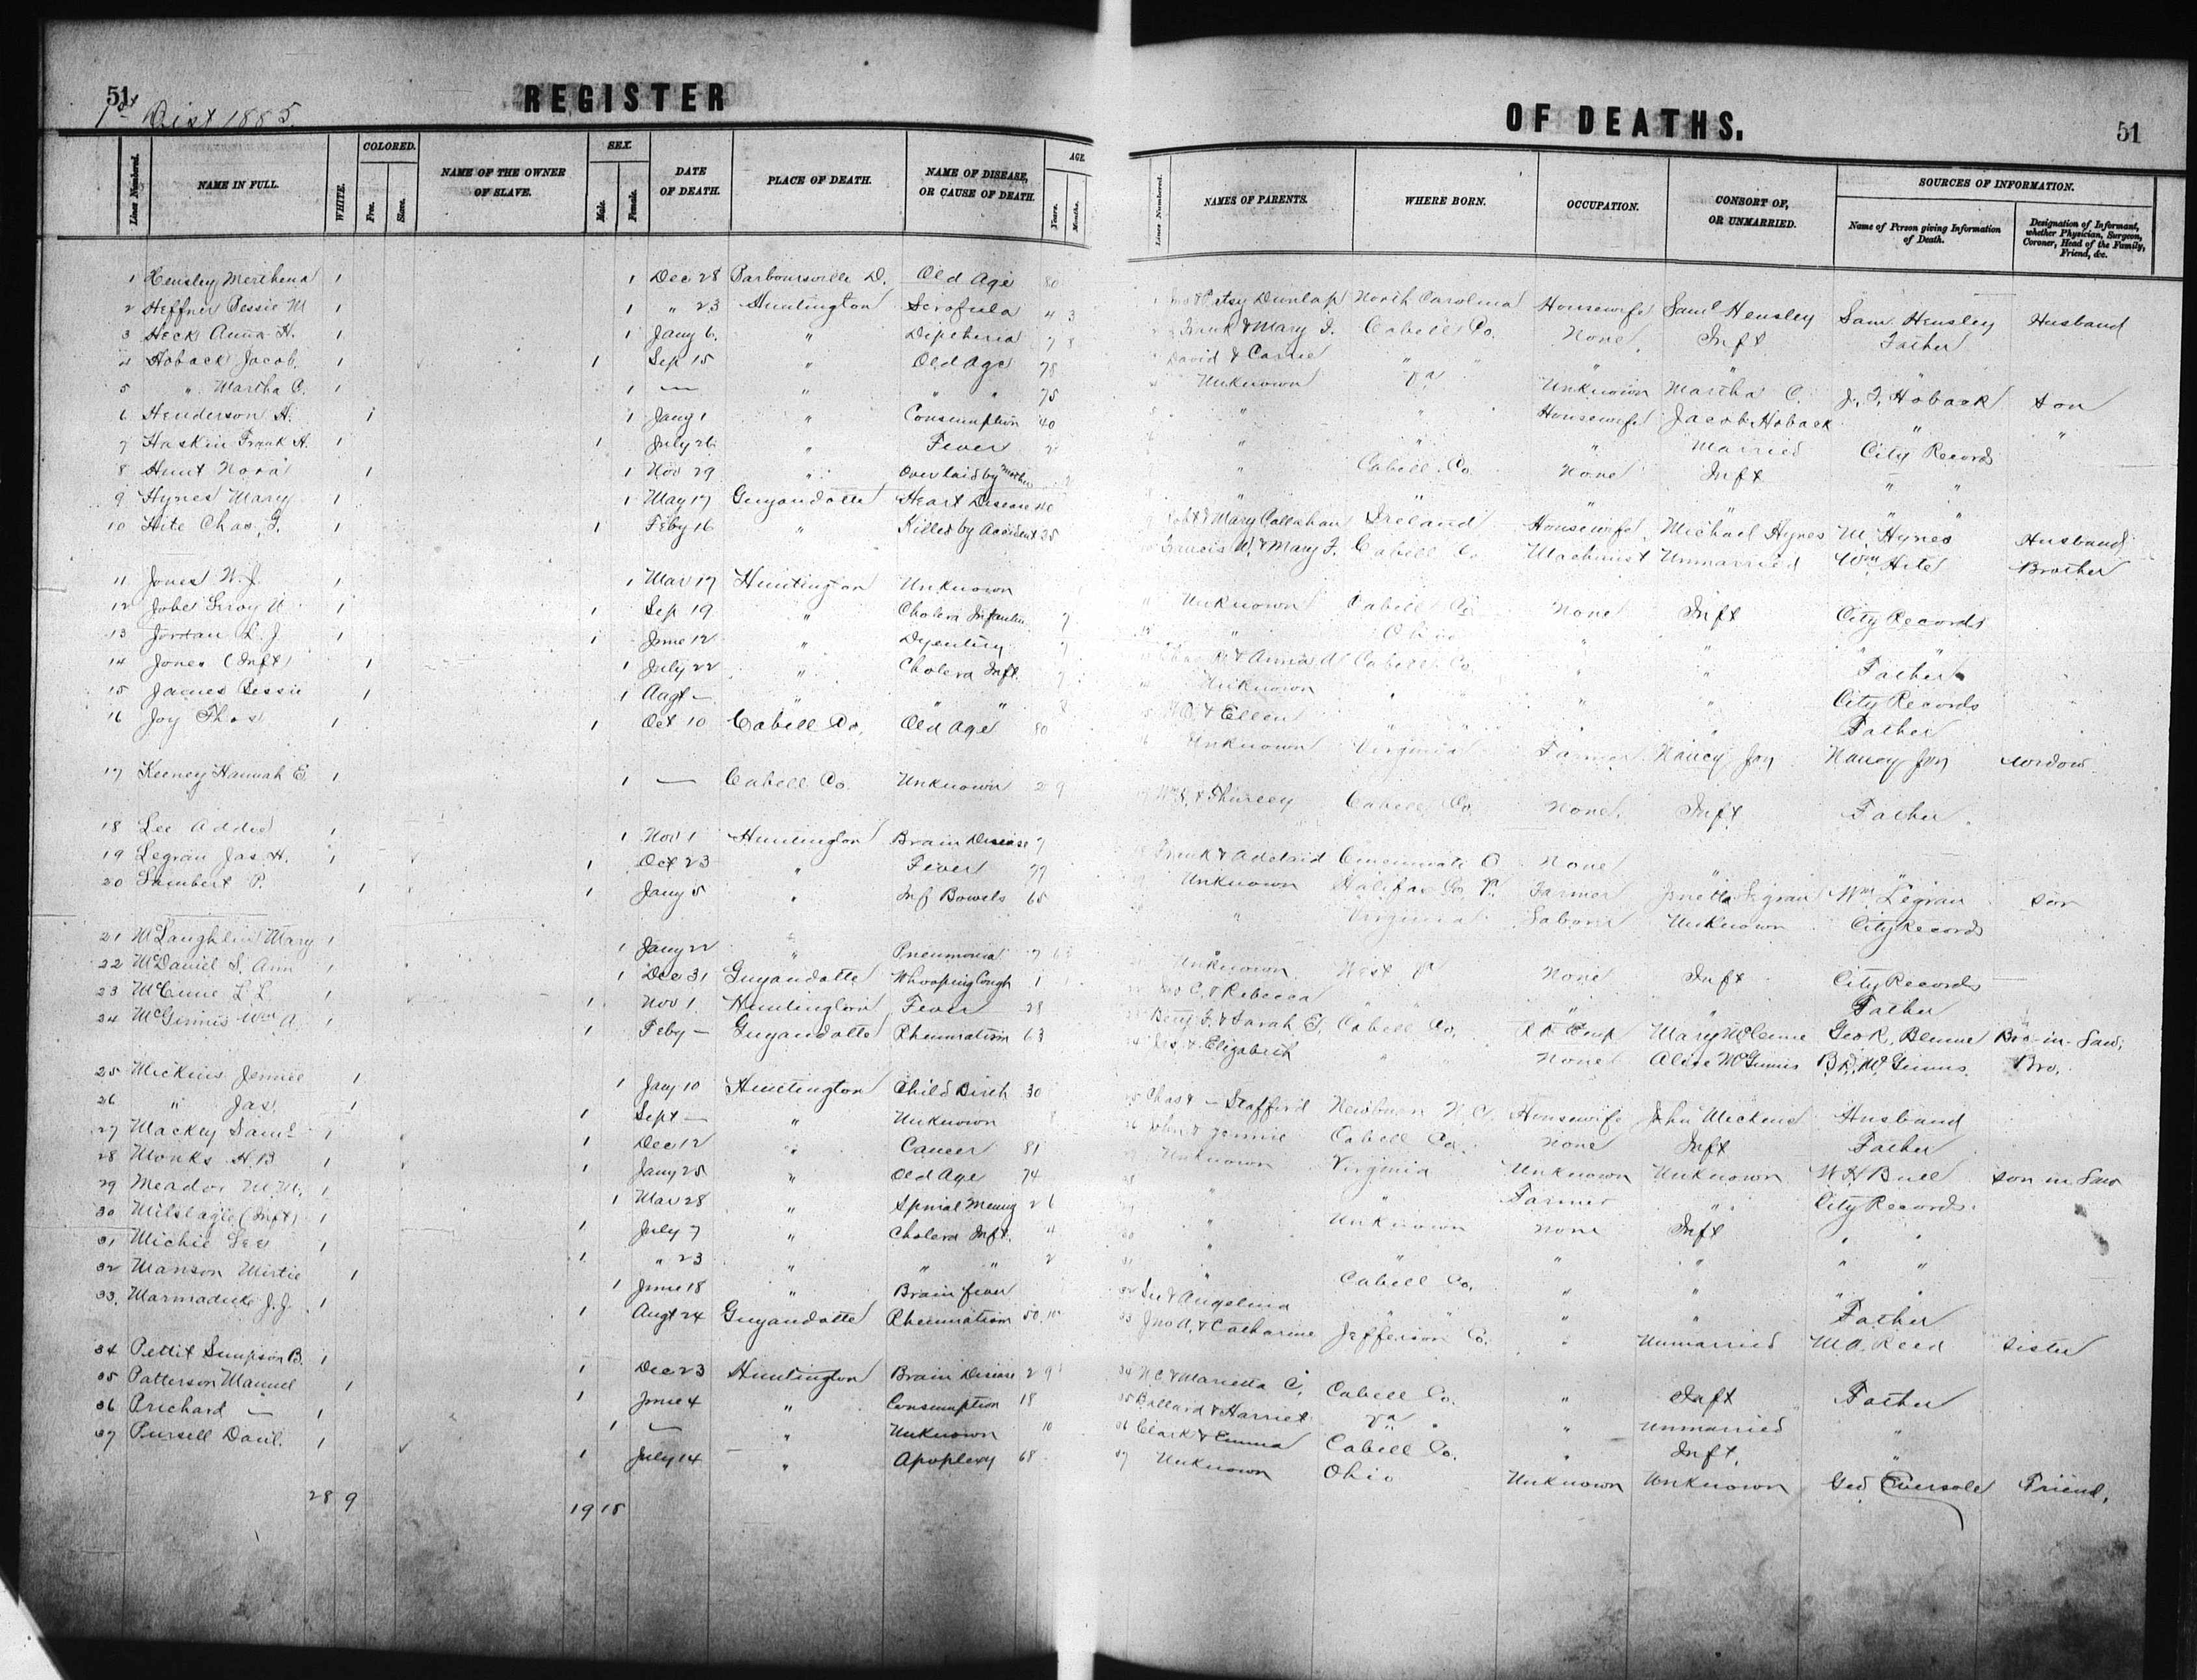 51
1st Dist 1885.
REGISTER
Lines Numbered. NAME IN FULL. WHITE. COLORED. Free. Slave. NAME OF THE OWNER OF SLAVE. SEX. Male. Female. DATE OF DEATH. PLACE OF DEATH. NAME OF DISEASE, OR CAUSE OF DEATH. AGE. Years. Months.
1 Hensley 1 1 Dec 28 Barboursville D. Old Age 80
2 Heffner Bessie M 1 1 " 23 Huntington Scrofula 4 3
3 Heck Anna H. 1 1 Jany 6. " Diptheria 7 8
4 Hoback Jacob. 1 1 Sep 15 " Old Age 78
5 " Martha C. 1 1 — " " " 75
6 Henderson H. 1 1 Jany 1 " Consumption 40
7 Haskin Frank H. 1 1 July 26 " Fever
8 Hunt Nora 1 1 Nov 29 " Overlaid by Mother
9 Hynes Mary 1 1 May 17 Guyandotte Heart Disease
10 Hite Chas. 1 1 Feby 16 " Killed by Accident 25
11 Jones 1 1 Mar 17 Huntington Unknown
12 Jobe Leroy 1 1 Sep 19 " Cholera Infantum 7
13 Jordan L. J. 1 1 June 12 " Dysentery
14 Jones (Inft) 1 1 July 22 " Cholera Inft.
15 James Bessie 1 1 Augt — " " " 8
16 Joy Thos 1 1 Oct 10 Cabell Co. Old Age 80
17 Keeney Hannah E. 1 1 — Cabell Co. Unknown 2 9
18 Lee Addie 1 1 Nov 1 Huntington Brain Disease 7
19 Legran Jas. H. 1 1 Oct 23 " Fever 77
20 Lambert P. 1 1 Jany 5 " Inf Bowels 65
21 McLaughlin Mary 1 1 Jany 22 " Pneumonia
22 McDaniel S. Ann 1 1 Dec 31 Guyandotte Whooping Cough 1
23 L. L. 1 1 Nov 1. Huntington Fever 28
24 McGinnis Wm A. 1 1 Feby — Guyandotte Rheumatism 63
25 Mickins Jennie 1 1 Jany 10 Huntington Child Birth 30
26 " Jas. 1 1 Sept — " Unknown 8
27 Mackey Saml 1 1 Dec 12 " Cancer 81
28 Monks H. B 1 1 Jany 25 " Old Age 74
29 Meador M. M. 1 1 Mar 28 " Spinal Mening 2 6
30 Milslagle (Inft) 1 1 July 7 " Cholera Inft. 4
31 Michie Lee 1 1 " 23 " " " 2
32 Manson Mirtie 1 1 June 18 " Brain fever
33. Marmaduke J. J. 1 1 Augt 24 Guyandotte Rheumatism 50 10
34 Pettit Simpson B. 1 1 Dec 23 Huntington Brain Disease 2 9
35 Patterson Manuel 1 1 June 4 " Consumption 18
36 Prichard — 1 1 — " Unknown 10
37 Pursell Danl. 1 1 July 14 " Apoplexy 68
28 9 19 18
OF DEATHS.
51
Lines Numbered. NAMES OF PARENTS. WHERE BORN. OCCUPATION. CONSORT OF, OR UNMARRIED. SOURCES OF INFORMATION. Name of Person giving Information of Death. Designation of Informant, whether Physician, Surgeon, Coroner, Head of the Family, Friend, &c.
1 & Patsy Dunlap North Carolina Housewife Saml Hensley Sam. Hensley Husband
2 Frank & Mary F. Cabell Co. None. Inft Father
3 David & Carrie " " " " "
4 Unknown Va Unknown Martha C. J. F. Hoback Son
5 " " Housewife Jacob Hoback " "
6 " " " Married City Records
7 " Cabell Co. None Inft " "
8 " " " " " "
9 Robt & Mary Callahan Ireland Housewife. Michael Hynes M. Hynes Husband
10 Francis W. & Mary F. Cabell Co Machinist Unmarried Wm Hite Brother
11 Unknown Cabell Co None Inft City Records
12 " Ohio " " " "
13 & Anna Cabell Co. " " Father
14 Unknown " " " " City Records
15 & Ellen " " " " Father
16 Unknown Virginia Farmer Nancy Joy Nancy Joy widow
17 Cabell Co. None. Inft Father
18 Frank & Adelaid Cincinnati O None " "
19 Unknown Halifax Co. Va. Farmer Legran Wm Legran Son
20 " Virginia Laborer Unknown City Records
21 Unknown West Va None Inft City Records
22 C. & Rebecca " " " " Father
23 Benj F. & Sarah E. Cabell Co. R R Emp Mary Geo R. Bro-in-Law.
24 & Elizabeth " " None Alice McGinnis B. D. McGinnis. Bro.
25 Chas & — Stafford Newburn N. C. Housewife John Mickens Husband
26 John & Jennie Cabell Co. None Inft Father
27 Unknown Virginia Unknown Unknown W H Buel Son in Law
28 " " Farmer " City Records
29 " Unknown None Inft " "
30 " " " " " "
31 " Cabell Co. " " " "
32 & Angelina " " " " Father
33 Jno A. & Catharine Jefferson Co. " Unmarried M. A. Reed Sister
34 & Marietta C. Cabell Co. " Inft Father
35 Ballard & Harriet Va " Unmarried "
36 Clark & Emma Cabell Co. " Inft. "
37 Unknown Ohio Unknown Unknown Geo. Eversole Friend.